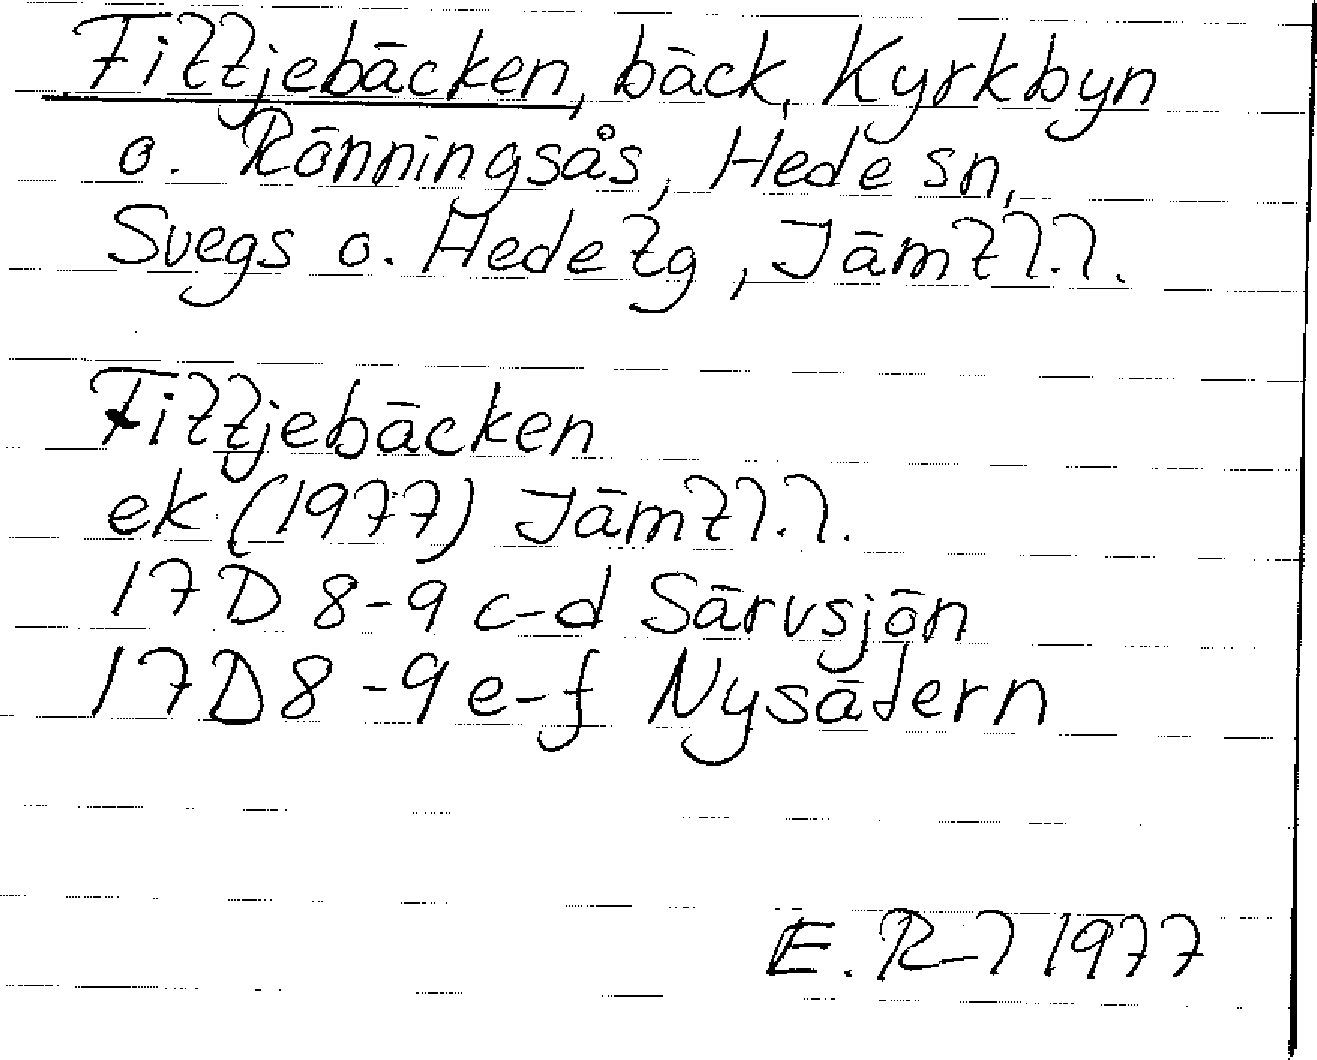 Fittjebäcken, bäck, Kyrkbyn
o. Rönningsås, Hede sn,
Svegs o. Hede tg, Jämtl.l.
Fittjebäcken
ek (1977) Jämtl.l.
17D 8-9 c-d Särvsjön
17D 8-9 e-f Nysätern
E. R-l 1977